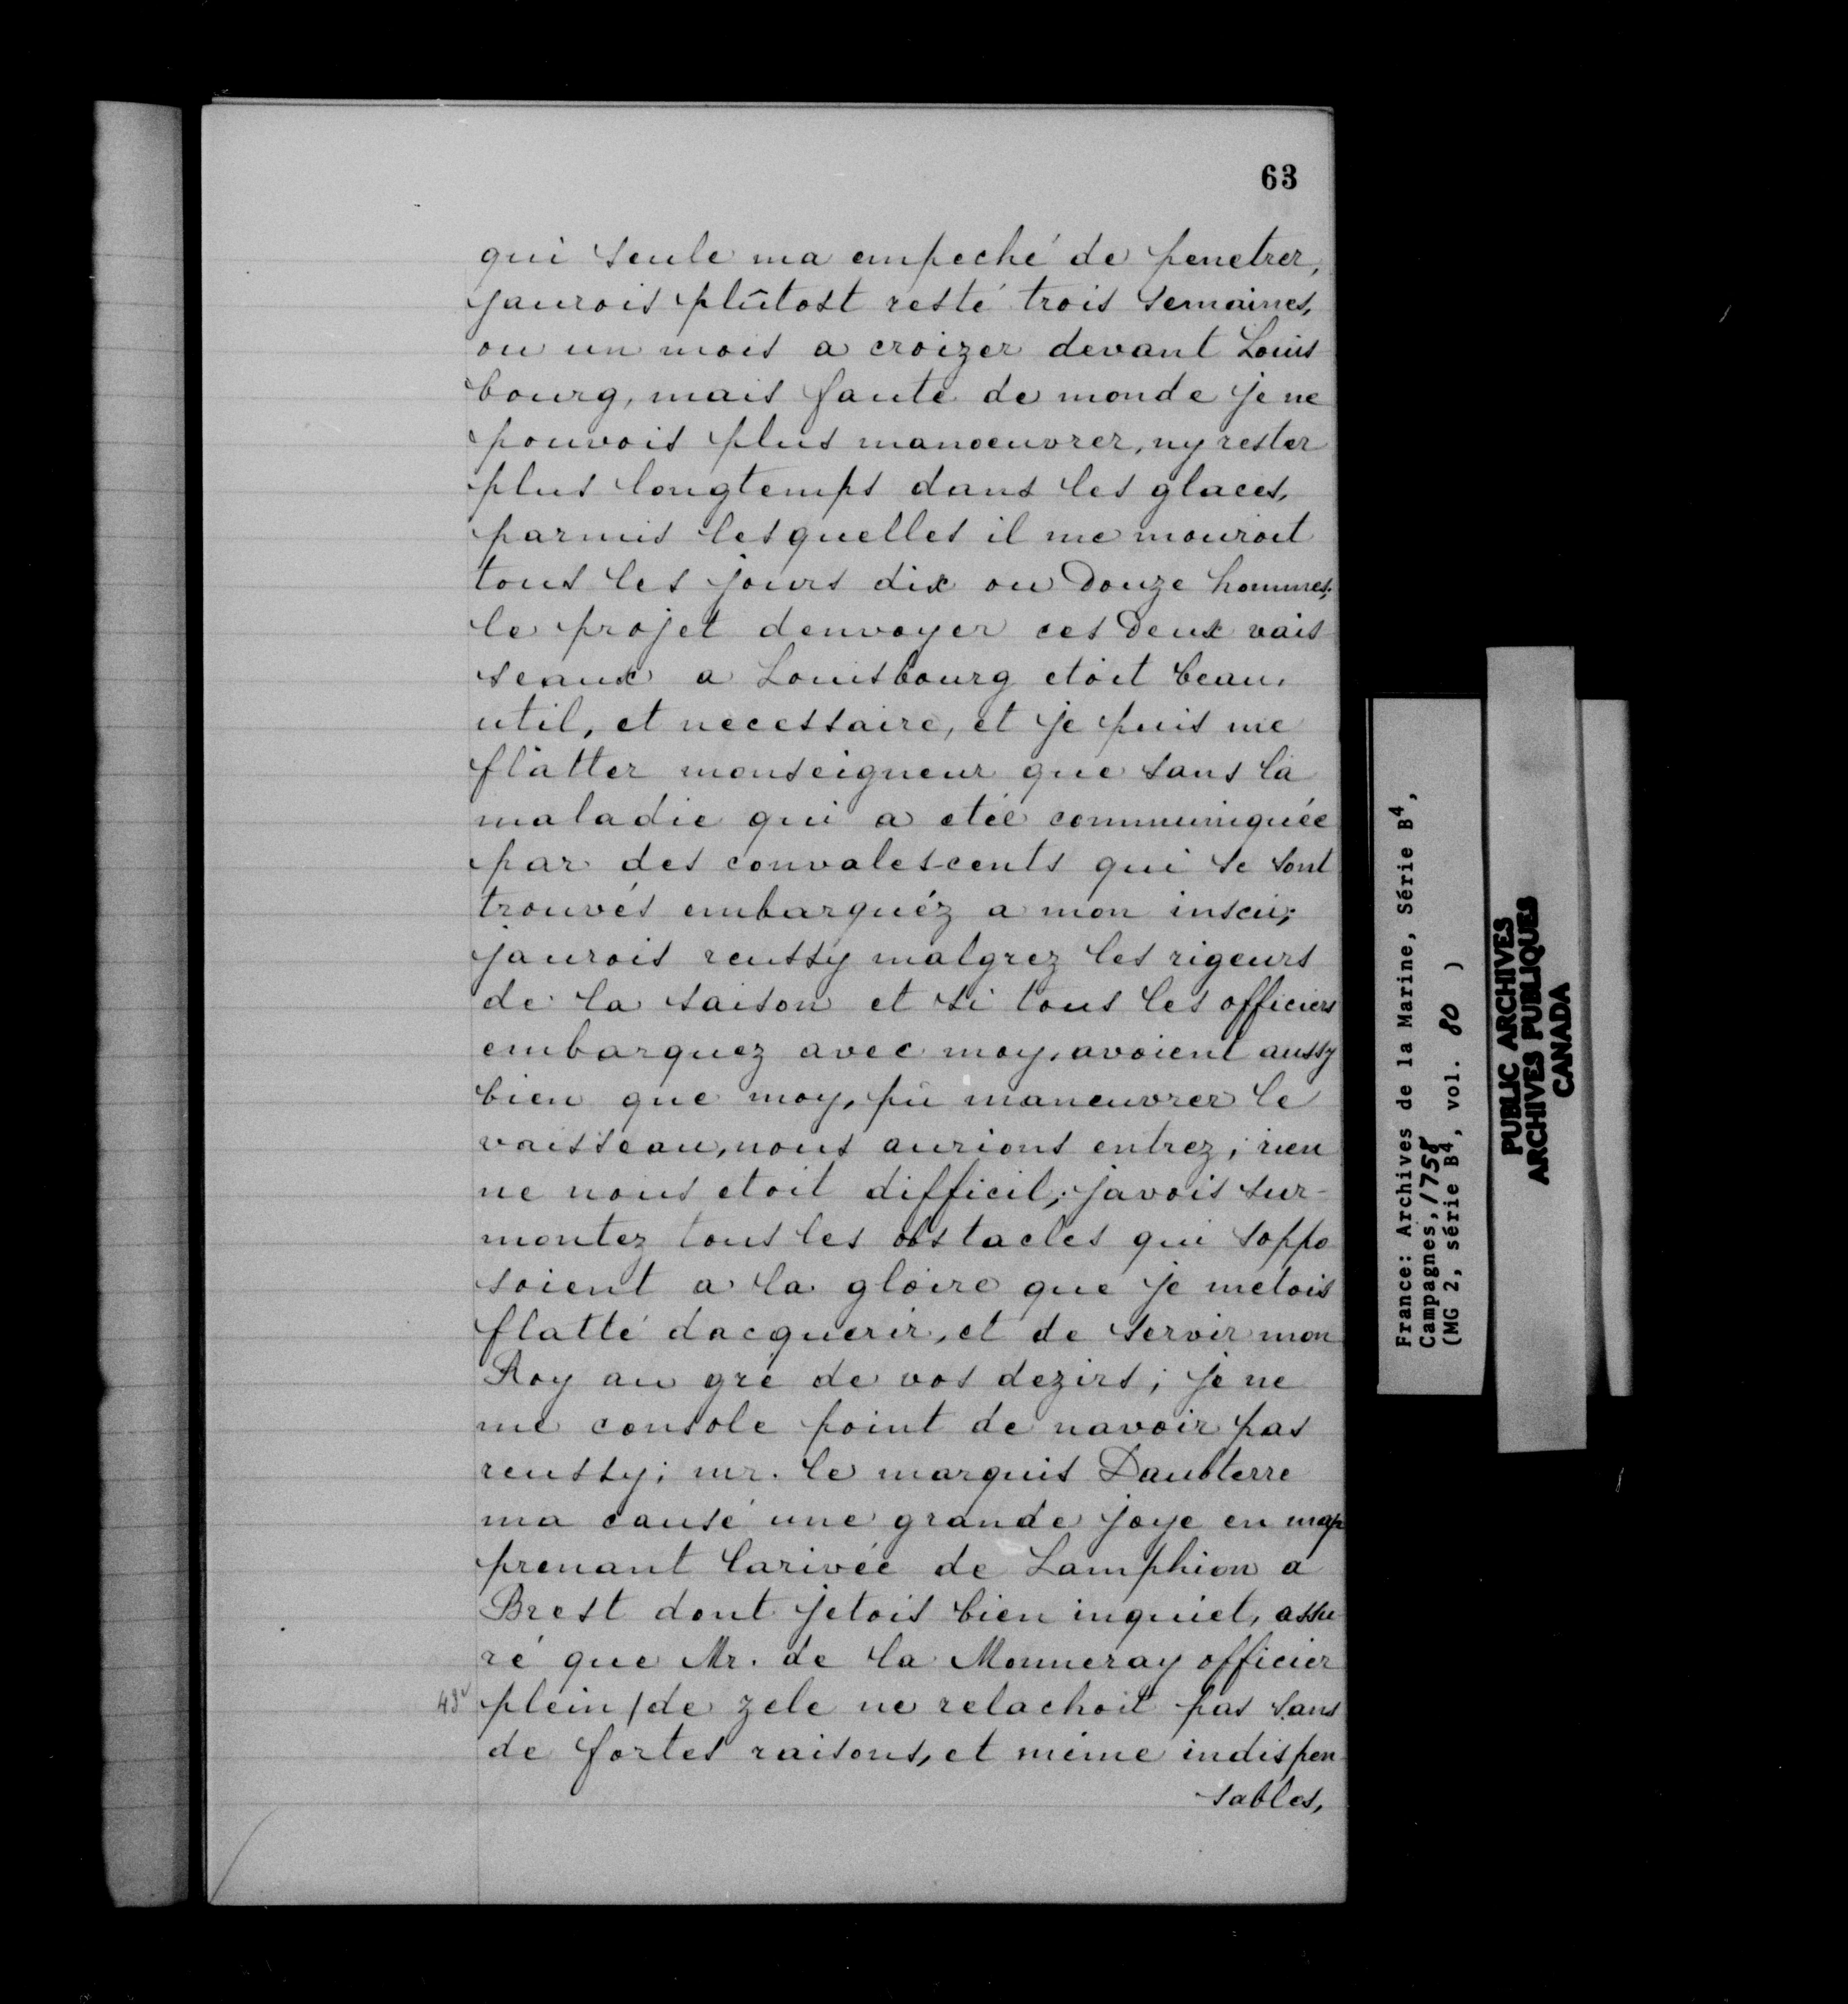 63
qui seule ma empeché de penetrer,
jaurois plûtost resté trois semaines,
ou un mois a croizer devant Louis
bourg, mais faute de monde je ne
pouvois plus manoeuvrer, ny rester
plus longtemps dans les glaces,
parmis lesquelles il me mouroit
tous les jours dix ou Douze hommes;
le projet denvoyer ces Deux vais
seaux a Louisbourg etoit beau,
util, et necessaire, et je puis me
flatter monseigneur que sans la
maladie qui a etée communiquée
par des convalescents qui se sont
trouvés embarquéz a mon insceu;
jaurois reussy malgrez les rigeurs
de la saison et si tous les officiers
embarquez avec moy, avoient aussy
bien que moy, pû maneuvrer le
vaisseau, nous aurions entrez; rien
ne nous etoit difficil; javois sur-
montez tous les obstacles qui soppo
soient a la gloire que je metois
flatté dacquerir, et de servir mon
Roy au gré de vos dezirs; je ne
me console point de navoir pas
reussy; mr. le marquis Daubterre
ma causé une grande joye en map
prenant larivée de Lamphion a
Brest dont jetois bien inquiet, assu
ré que Mr. de la Monneray officier
48v plein / de zele ne relachoit pas sans
de fortes raisons, et même indispen
sables,
France: Archives de la Marine, Série B4,
Campagnes, 1758
(MG 2, série B4, vol. 80 )
PUBLIC ARCHIVES
ARCHIVES PUBLIQUES
CANADA